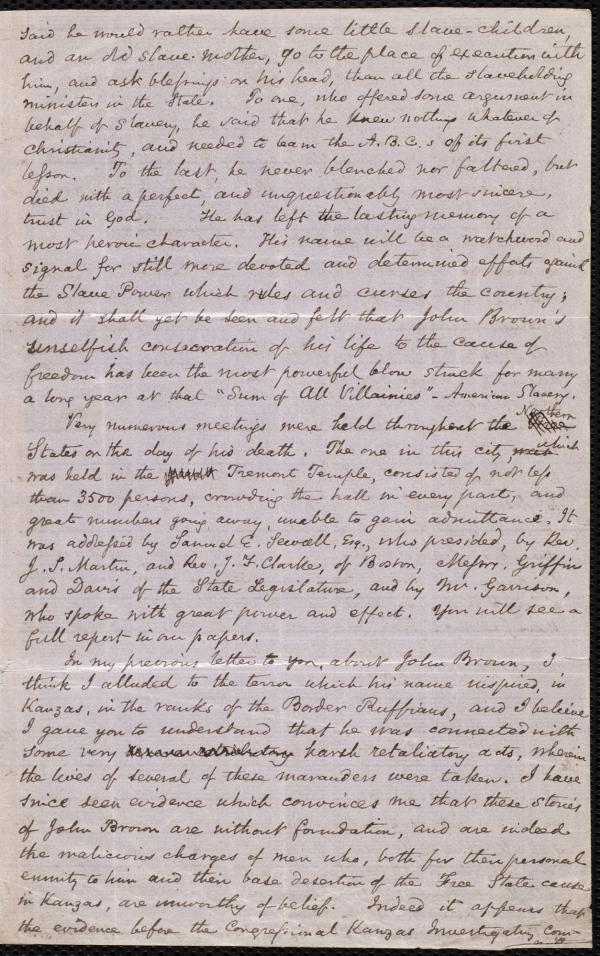 said he would rather have some little slave-children,
and an old slave-mother, go to the place of execution with
him, and ask blessings on his head, than all the slaveholding
ministers in the State. To one, who offered some argument in
behalf of Slavery, he said that he knew nothing whatever of
Christianity, and needed to learn the A.B.C.s of its first
lesson. To the last, he never blenched nor faltered, but
died with a perfect, and unquestionably most sincere,
trust in God. He has left the lasting memory of a
most heroic character. His name will be a watchword and
signal for still more devoted and determined efforts against
the Slave Power which rules and curses the country;
and it shall yet be seen and felt that John Brown's
unselfish consecration of his life to the cause of
freedom has been the most powerful blow struck for many
a long year at that "Sum of All Villainies" - American Slavery.
Very numerous meetings were held throughout the Northern
States on the day of his death. The one in this city, which
was held in the Tremont Temple, consisted of not less
than 3500 persons, crowding the hall in every part, and
great numbers going away, unable to gain admittance. It
was addressed by Samuel E. Sewall, Esq., who presided, by Rev.
J. S. Martin, and Rev. J. F. Clarke, of Boston, Messrs. Griffin
and Davis of the State Legislature, and by Mr. Garrison,
who spoke with great power and effect. You will see a
full report in our papers.
In my previous letter to you, about John Brown, I
think I alluded to the terror which his name inspired, in
Kanzas, in the ranks of the Border Ruffians, and I believe
I gave you to understand that he was connected with
some very harsh retaliatory acts, wherein
the lives of several of these marauders were taken. I have
since seen evidence which convinces me that these stories
of John Brown are without foundation, and are indeed
the malicious charges of men who, both for their personal
enmity to him and their base desertion of the Free State cause
in Kanzas, are unworthy of belief. Indeed it appears that
the evidence before the Congressional Kanzas Investigating Com-